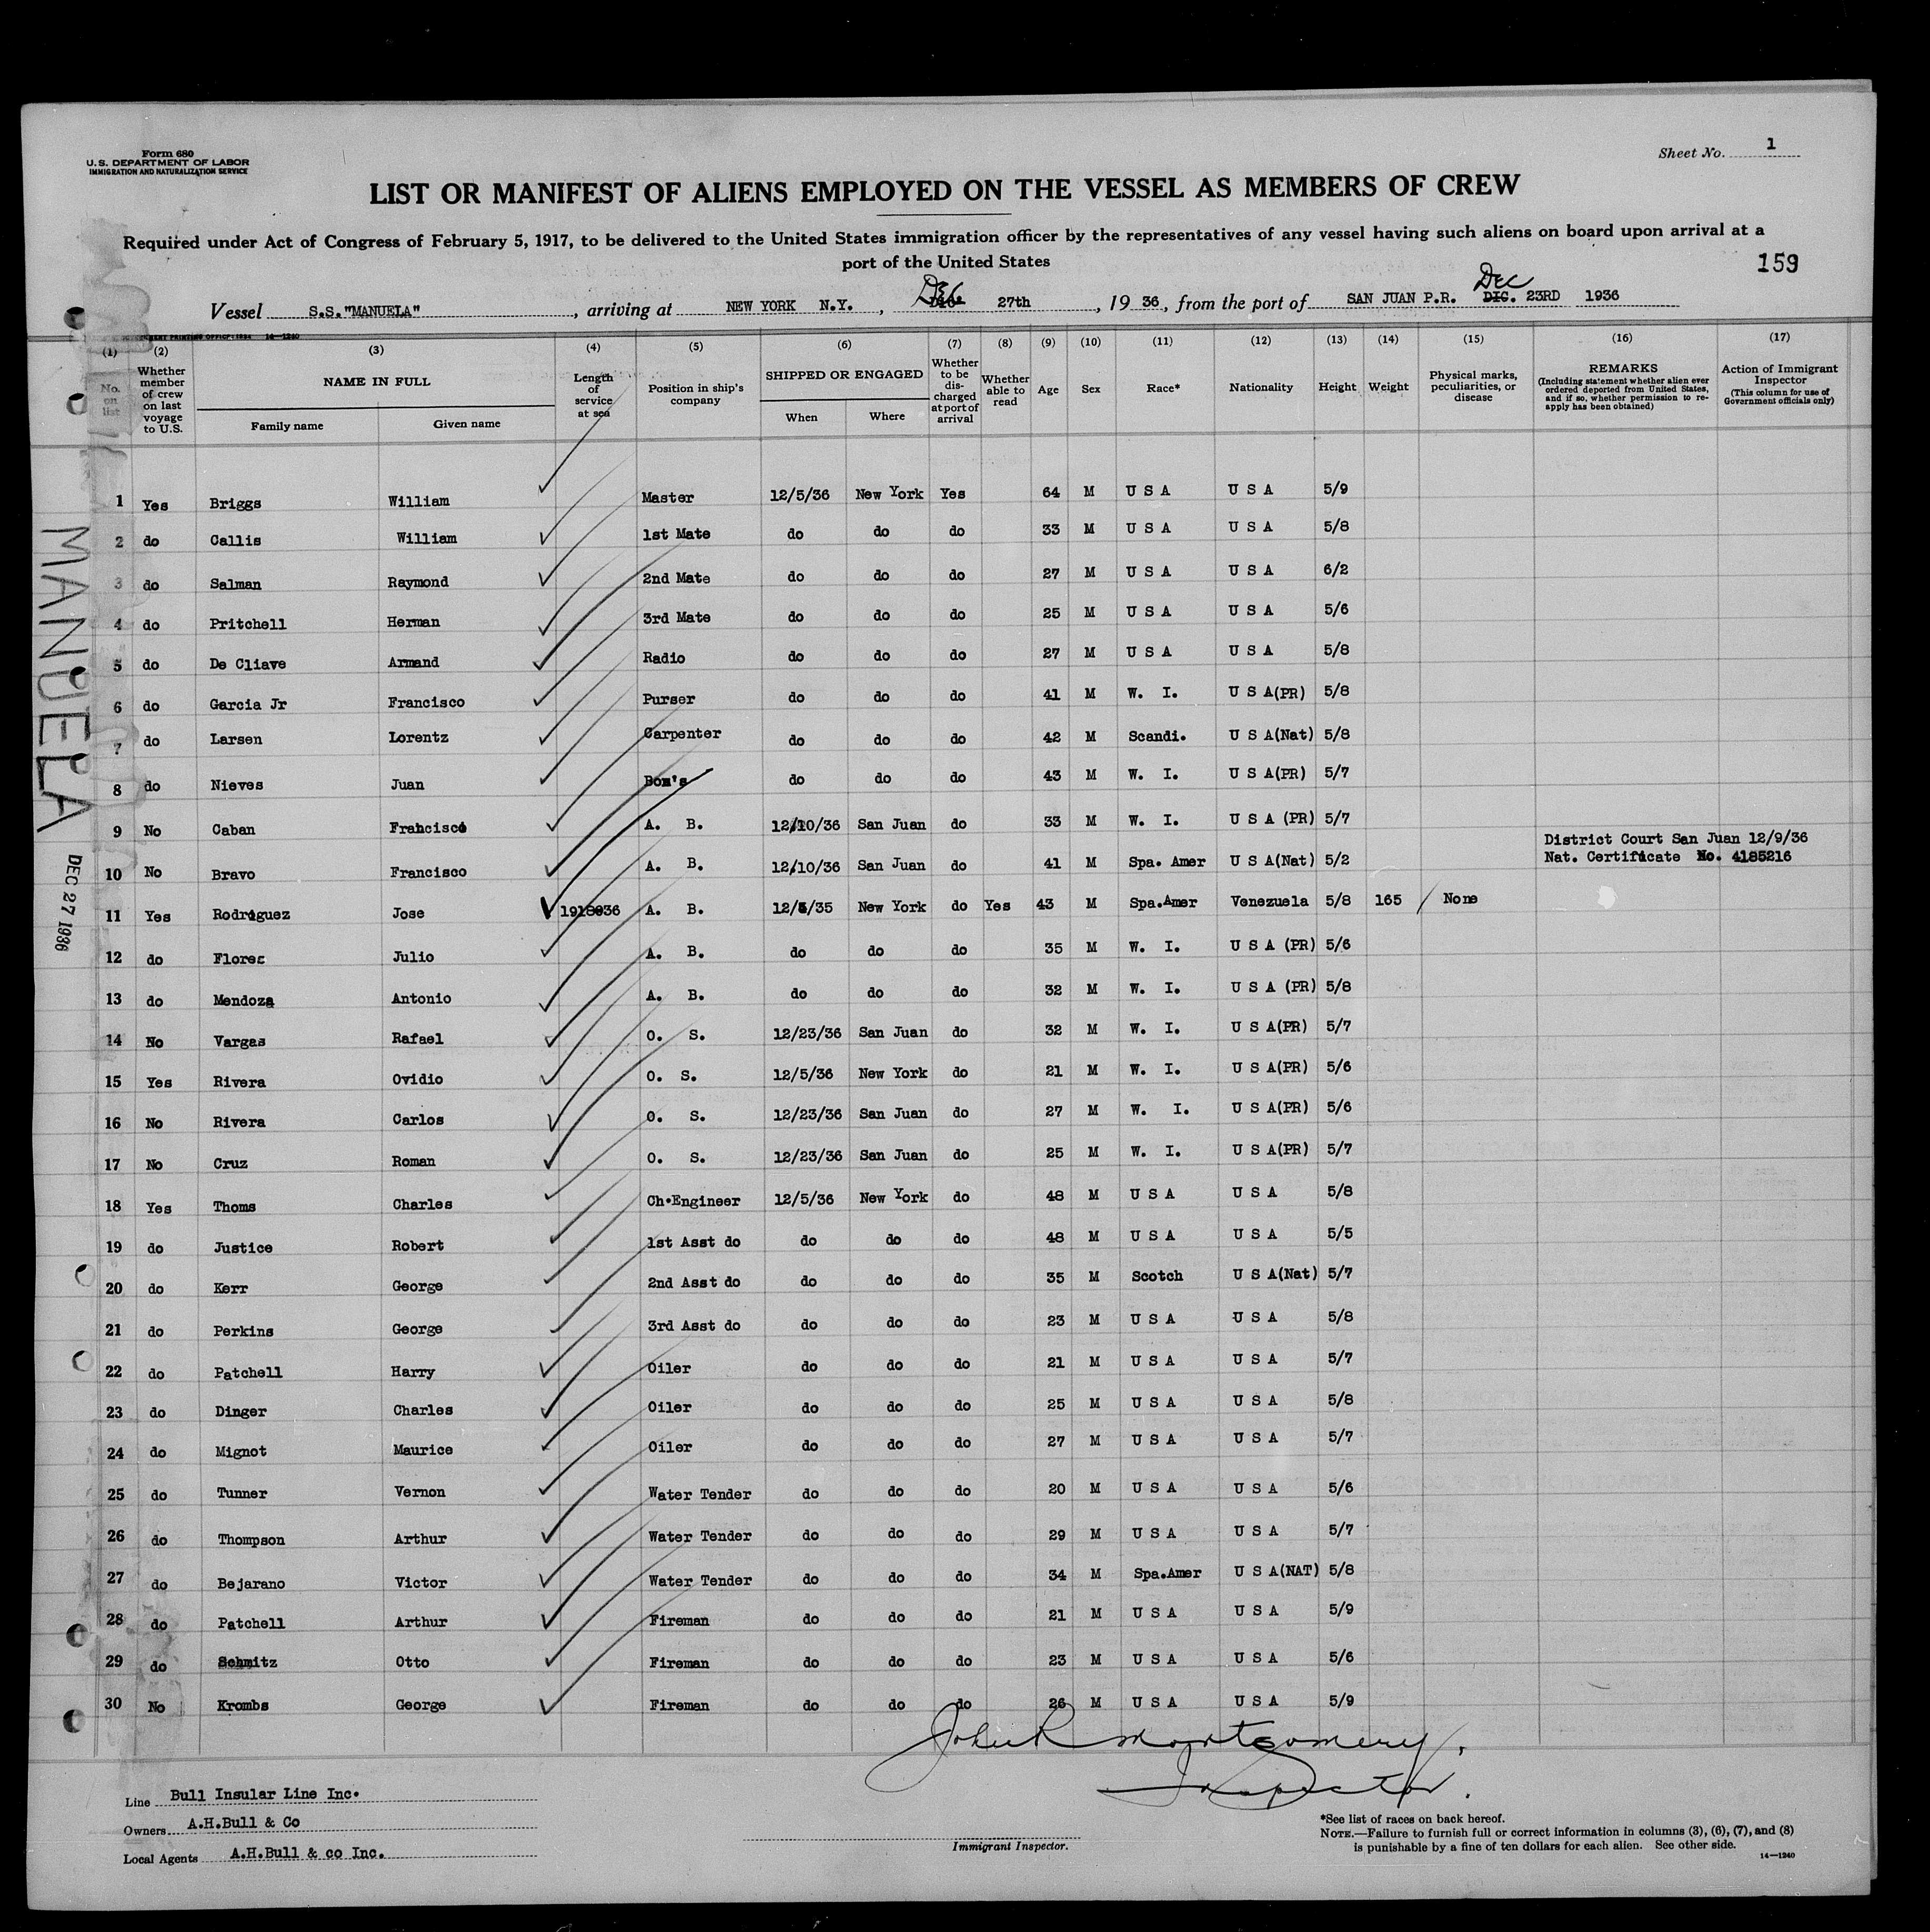 Form 680
U. S. DEPARTMENT OF LABOR
IMMIGRATION AND NATURALIZATION SERVICE
Sheet No. 1
LIST OR MANIFEST OF ALIENS EMPLOYED ON THE VESSEL AS MEMBERS OF CREW
Required under Act of Congress of February 5, 1917, to be delivered to the United States immigration officer by the representatives of any vessel having such aliens on board upon arrival at a
port of the United States
159
Vessel S.S."MANUELA", arriving at NEW YORK N.Y., Dec 27th, 19 36, from the port of SAN JUAN P.R. Dec DIC. 23RD 1936
14—1240
(1) (2) (3) (4) (5) (6) (7) (8) (9) (10) (11) (12) (13) (14) (15) (16) (17)
No. on list
Whether member of crew on last voyage to U.S.
NAME IN FULL
Family name Given name
Length of service at sea
Position in ship's company
SHIPPED OR ENGAGED
When Where
Whether to be discharged at port of arrival
Whether able to read
Age
Sex
Race*
Nationality
Height
Weight
Physical marks, peculiarities, or disease
REMARKS
(Including statement whether alien ever ordered deported from United States, and if so, whether permission to reapply has been obtained)
Action of Immigrant Inspector
(This column for use of Government officials only)
1 Yes Briggs William Master 12/5/36 New York Yes 64 M U S A U S A 5/9
2 do Callis William 1st Mate do do do 33 M U S A U S A 5/8
3 do Salman Raymond 2nd Mate do do do 27 M U S A U S A 6/2
4 do Pritchell Herman 3rd Mate do do do 25 M U S A U S A 5/6
5 do De Cliave Armand Radio do do do 27 M U S A U S A 5/8
6 do Garcia Jr Francisco Purser do do do 41 M W. I. U S A(PR) 5/8
7 do Larsen Lorentz Carpenter do do do 42 M Scandi. U S A(Nat) 5/8
8 do Nieves Juan Bom's do do do 43 M W. I. U S A(PR) 5/7
9 No Caban Francisco A. B. 12/10/36 San Juan do 33 M W. I. U S A (PR) 5/7
District Court San Juan 12/9/36
10 No Bravo Francisco A. B. 12/10/36 San Juan do 41 M Spa. Amer U S A(Nat) 5/2 Nat. Certificate No. 4185216
11 Yes Rodriguez Jose A. B. 12/5/35 New York do Yes 43 M Spa.Amer Venezuela 5/8 165 None
12 do Flores Julio A. B. do do do 35 M W. I. U S A (PR) 5/6
13 do Mendoza Antonio A. B. do do do 32 M W. I. U S A (PR) 5/8
14 No Vargas Rafael O. S. 12/23/36 San Juan do 32 M W. I. U S A(PR) 5/7
15 Yes Rivera Ovidio O. S. 12/5/36 New York do 21 M W. I. U S A(PR) 5/6
16 No Rivera Carlos O. S. 12/23/36 San Juan do 27 M W. I. U S A(PR) 5/6
17 No Cruz Roman O. S. 12/23/36 San Juan do 25 M W. I. U S A(PR) 5/7
18 Yes Thoms Charles Ch.Engineer 12/5/36 New York do 48 M U S A U S A 5/8
19 do Justice Robert 1st Asst do do do do 48 M U S A U S A 5/5
20 do Kerr George 2nd Asst do do do do 35 M Scotch U S A(Nat) 5/7
21 do Perkins George 3rd Asst do do do do 23 M U S A U S A 5/8
22 do Patchell Harry Oiler do do do 21 M U S A U S A 5/7
23 do Dinger Charles Oiler do do do 25 M U S A U S A 5/8
24 do Mignot Maurice Oiler do do do 27 M U S A U S A 5/7
25 do Tunner Vernon Water Tender do do do 20 M U S A U S A 5/6
26 do Thompson Arthur Water Tender do do do 29 M U S A U S A 5/7
27 do Bejarano Victor Water Tender do do do 34 M Spa.Amer U S A(NAT) 5/8
28 do Patchell Arthur Fireman do do do 21 M U S A U S A 5/9
29 do Schmitz Otto Fireman do do do 23 M U S A U S A 5/6
30 No Krombs George Fireman do do do 26 M U S A U S A 5/9
MANUELA
DEC 27 1936
John R Montgomery.
Inspector.
Line Bull Insular Line Inc.
Owners A.H.Bull & Co
Local Agents A.H.Bull & co Inc.
Immigrant Inspector.
*See list of races on back hereof.
NOTE.—Failure to furnish full or correct information in columns (3), (6), (7), and (8)
is punishable by a fine of ten dollars for each alien. See other side.
14—1240